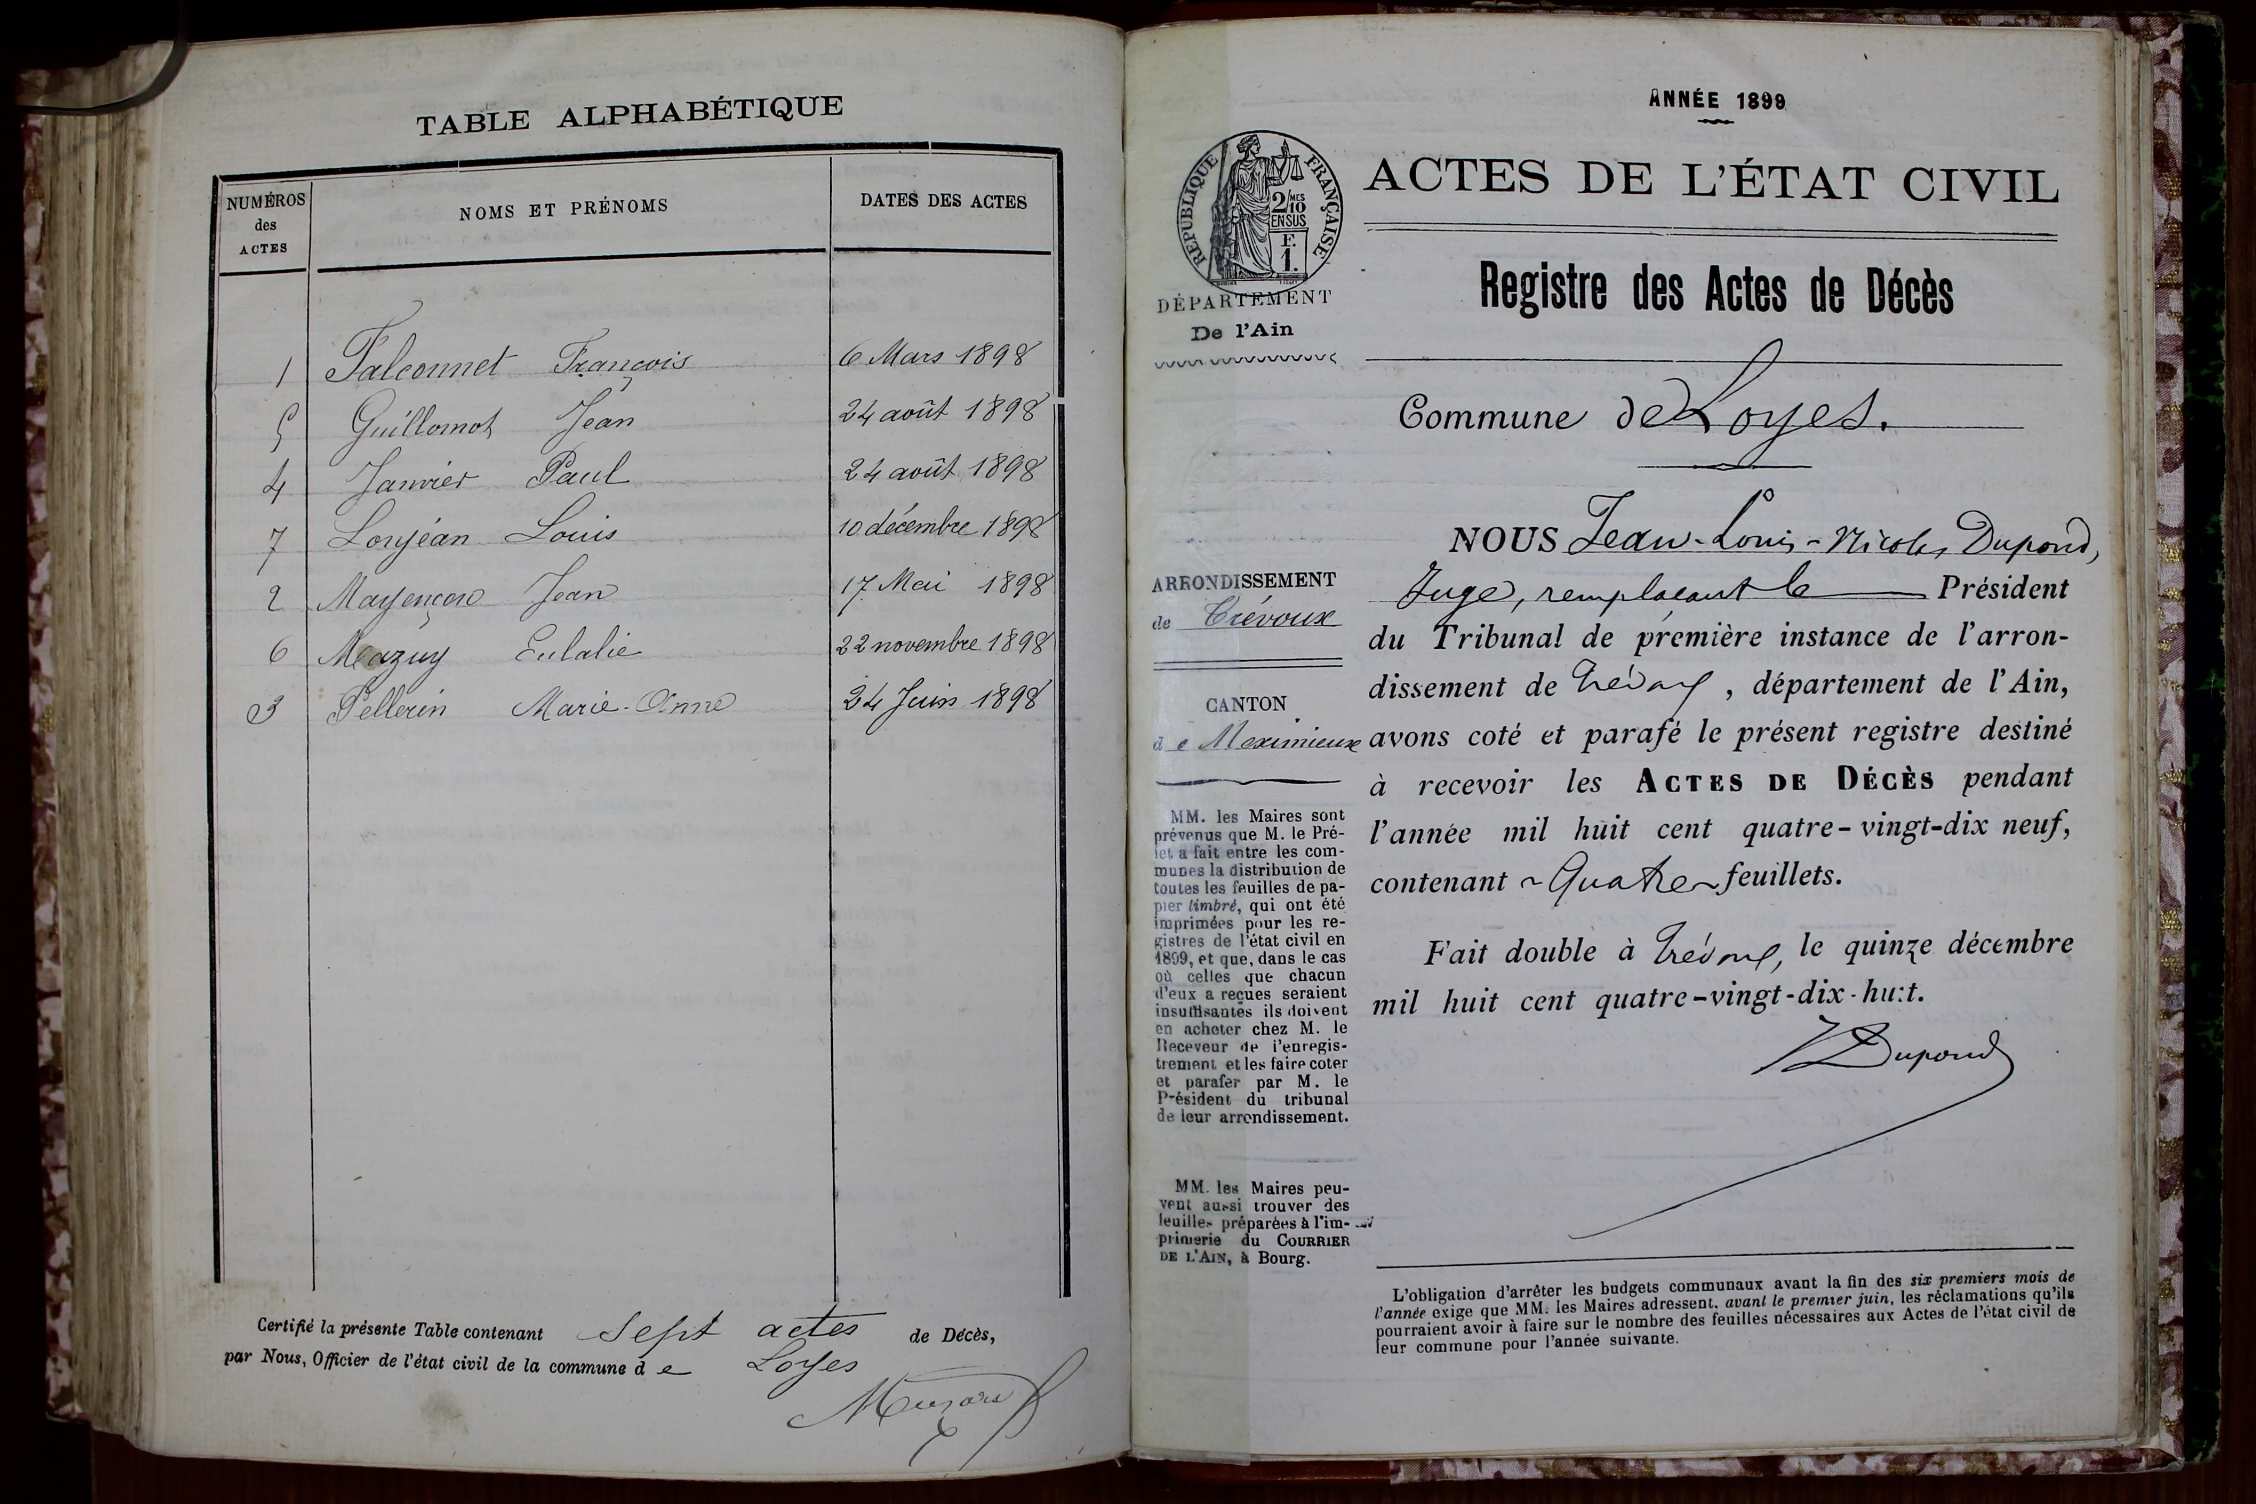 TABLE ALPHABÉTIQUE
NUMÉROS
des
ACTES
NOMS ET PRÉNOMS
DATES DES ACTES
1 Falconnet François 6 Mars 1898
5 Guillomot Jean 24 août 1898
4 Janvier Paul 24 août 1898
7 Lonjéan Louis 10 décembre 1898
2 Mayençon Jean 17 Mai 1898
6 Mazuy Eulalie 22 novembre 1898
3 Pellerin Marie-Anne 24 Juin 1898
Certifié la présente Table contenant sept actes de Décès,
par Nous, Officier de l'état civil de la commune de Loyes
ANNÉE 1899
RÉPUBLIQUE FRANÇAISE
2/10 MES
EN SUS
F.
1.
DÉPARTEMENT
De l'Ain
ARRONDISSEMENT
de Trévoux
CANTON
de Meximieux
MM. les Maires sont
prévenus que M. le Pré-
fet a fait entre les com-
munes la distribution de
toutes les feuilles de pa-
pier timbré, qui ont été
imprimées pour les re-
gistres de l'état civil en
1899, et que, dans le cas
où celles que chacun
d'eux a reçues seraient
insuffisantes ils doivent
en acheter chez M. le
Receveur de l'enregis-
trement et les faire coter
et parafer par M. le
Président du tribunal
de leur arrondissement.
MM. les Maires peu-
vent aussi trouver des
feuilles préparées à l'im-
primerie du COURRIER
DE L'AIN, à Bourg.
ACTES DE L'ÉTAT CIVIL
Registre des Actes de Décès
Commune de Loyes.
NOUS Jean-Louis-Nicolas Dupond,
Juge, remplaçant le Président
du Tribunal de première instance de l'arron-
dissement de Trévoux, département de l'Ain,
avons coté et parafé le présent registre destiné
à recevoir les ACTES DE DÉCÈS pendant
l'année mil huit cent quatre-vingt-dix neuf,
contenant Quatre feuillets.
Fait double à Trévoux, le quinze décembre
mil huit cent quatre-vingt-dix-huit.
Dupond
L'obligation d'arrêter les budgets communaux avant la fin des six premiers mois de
l'année exige que MM. les Maires adressent, avant le premier juin, les réclamations qu'ils
pourraient avoir à faire sur le nombre des feuilles nécessaires aux Actes de l'état civil de
leur commune pour l'année suivante.